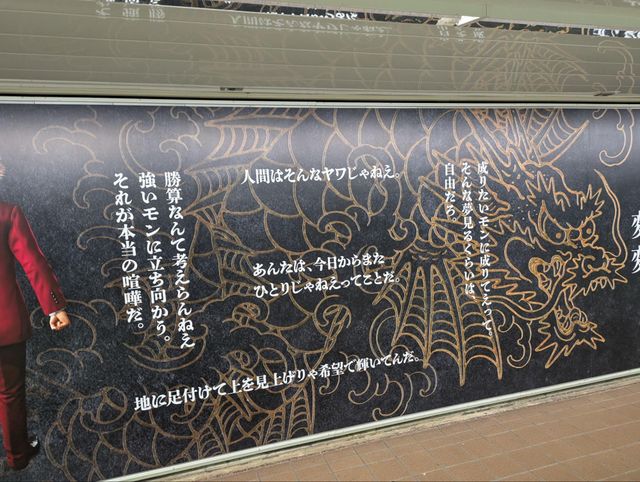 成りたいモンに成りてえって、
そんな夢見るぐらいは、
自由だろ。
人間はそんなヤワじゃねえ。
あんたは、今日からまた
ひとりじゃねえってことだ。
勝算なんて考えらんねえ
強いモンに立ち向かう。
それが本当の喧嘩だ。
地に足付けて上を見上げりゃ希望で輝いてんだ。